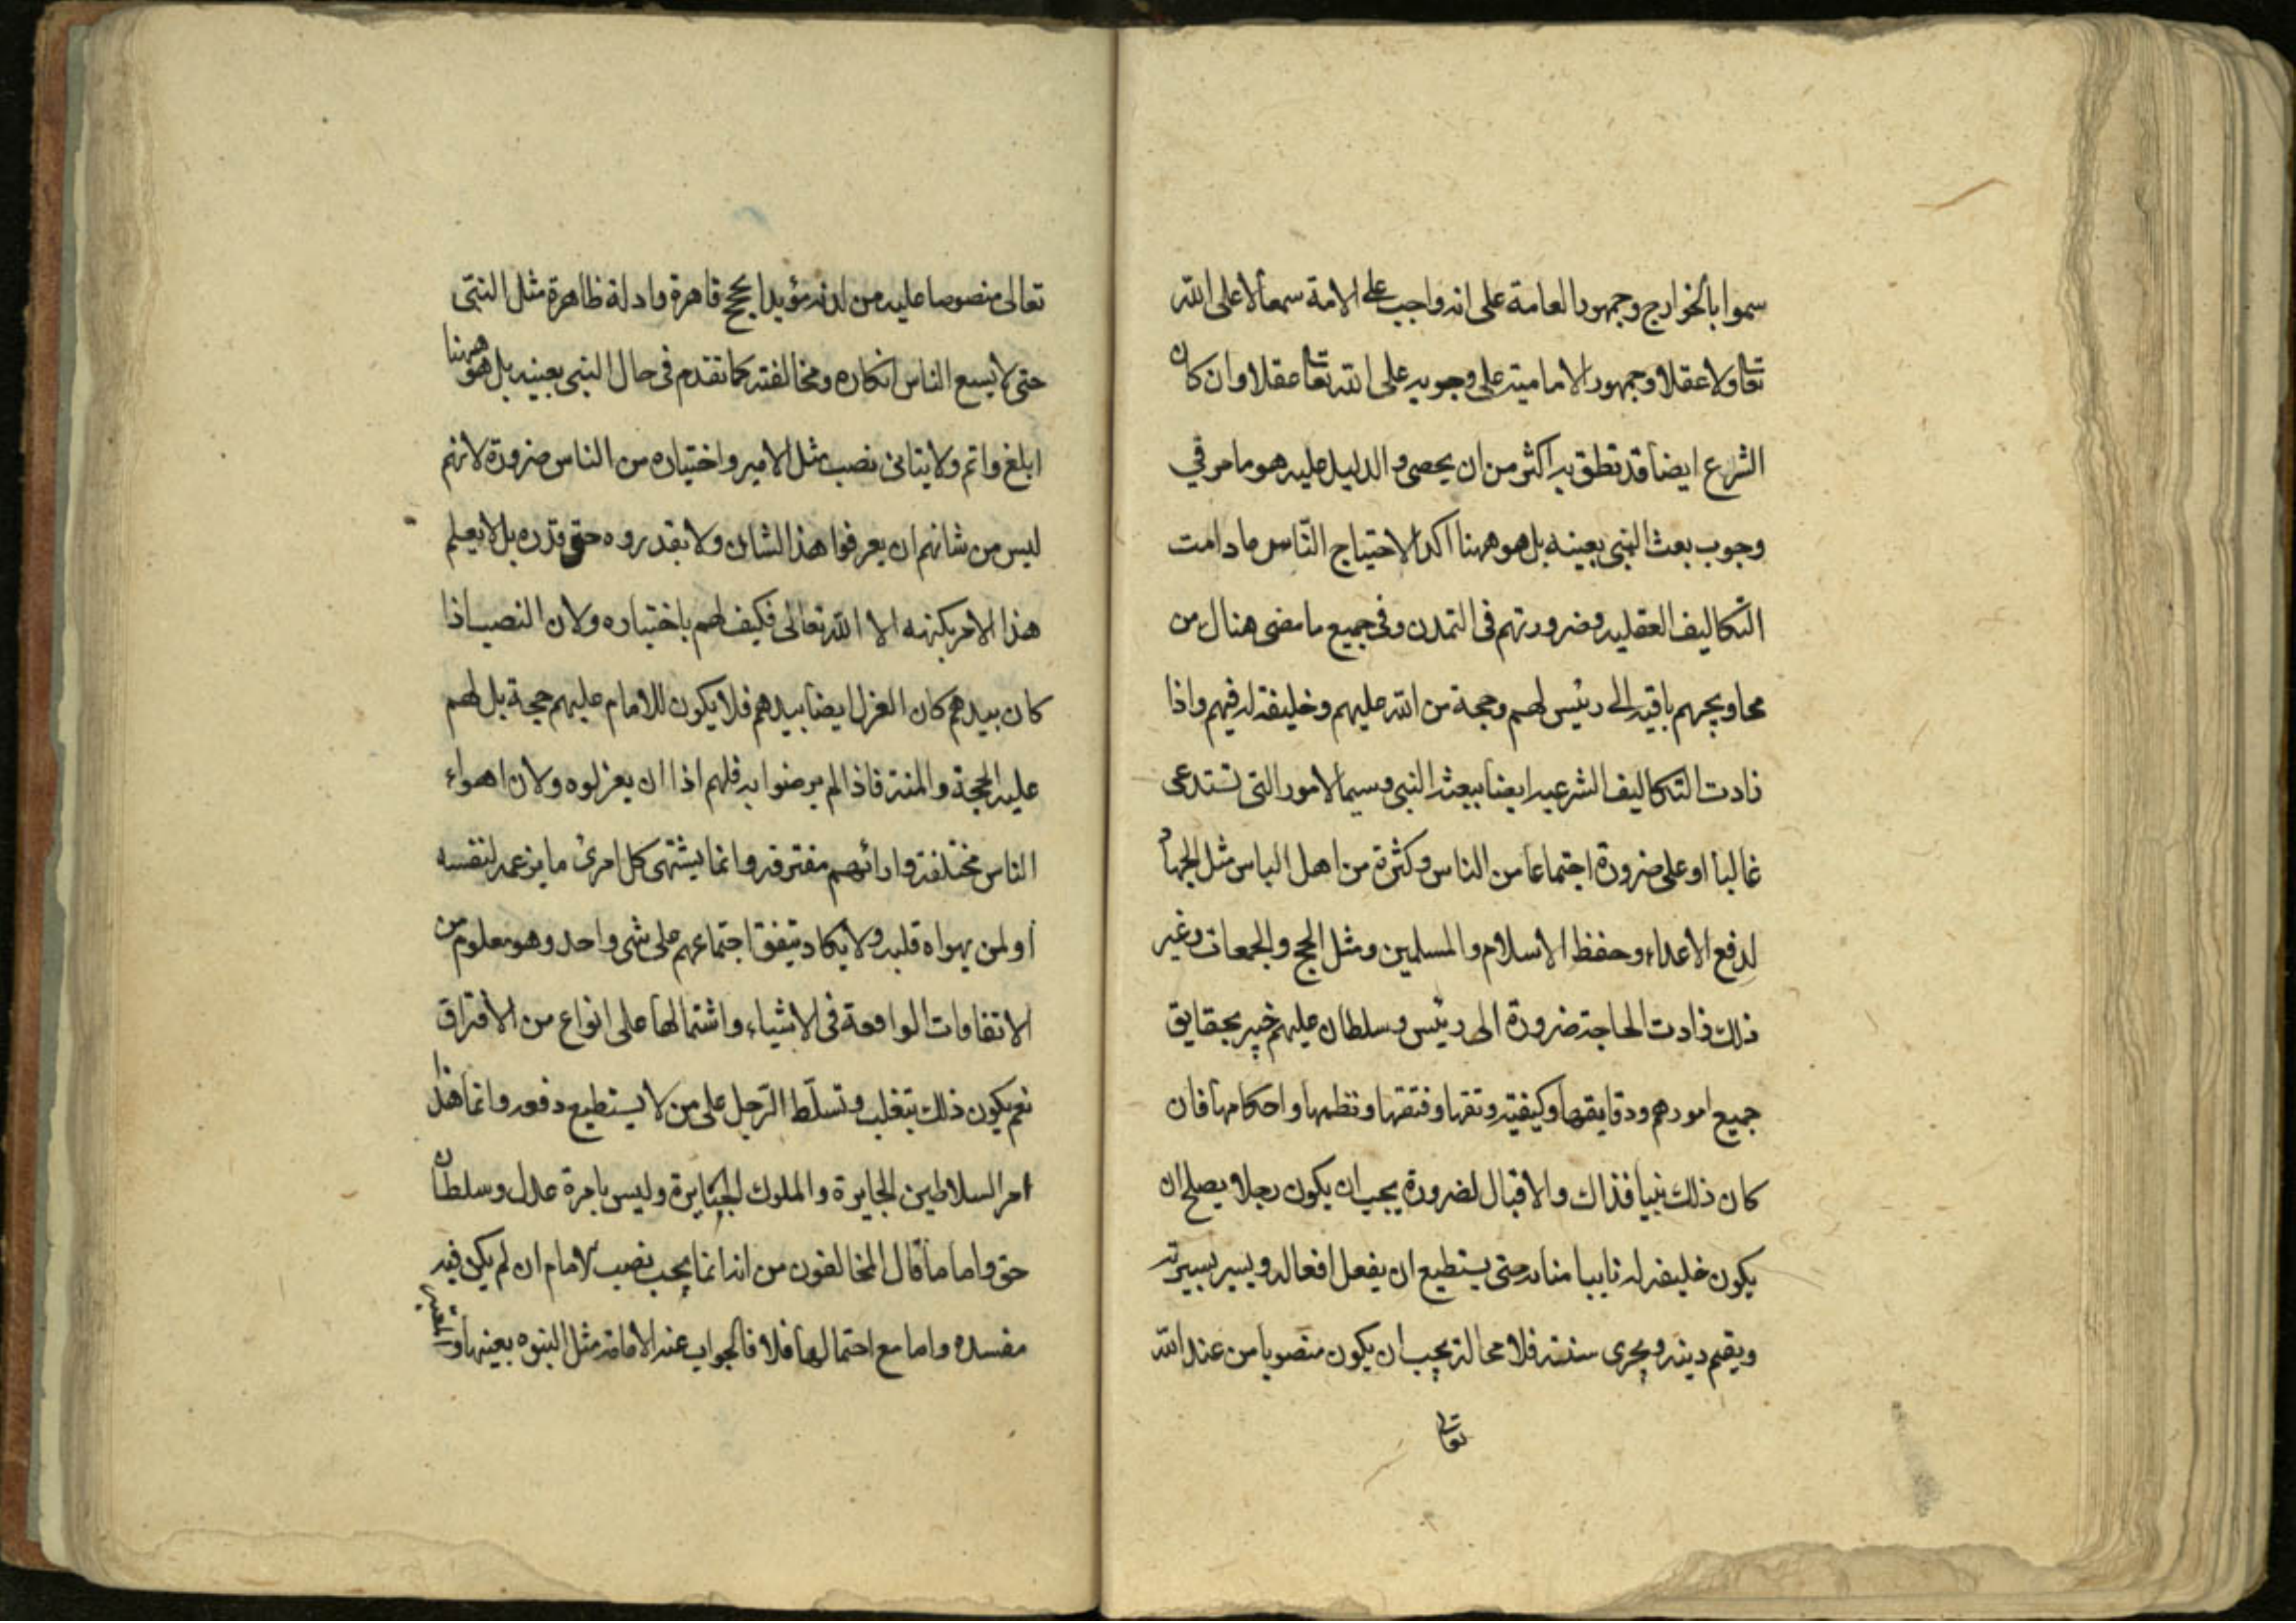 سموا بالخوارج وجمهور العامة على انه واجب على الامة سمعا لا على الله
تعا ولا عقلا وجمهور الامامية على وجوبه على الله تعا عقلا وان كان
الشرع ايضا قد نطق به اكثر من ان يحصى والدليل عليه هو ما مر في
وجوب بعث النبى بعينه بل هو ههنا اكد لاحتياج النّاس ما دامت
التكاليف العقليه وضرورتهم فى التمدن وفى جميع ما مضى هناك من
محاويجهم باقيه الى رئيس لهم وحجة من الله عليهم وخليفة له فيهم واذا
زادت التكاليف الشرعيه ايضا ببعث النبى وسيما الامور التى تستدعى
غالبا او على ضرورة اجتماعا من الناس وكثرة من اهل الباس مثل الجهاد
لدفع الاعداء وحفظ الاسلام والمسلمين ومثل الحج والجمعات وغير
ذلك زادت الحاجة ضرورة الى رئيس وسلطان عليهم خبير بحقايق
جميع امورهم ودقايقها وكيفية رتقها وفتقها ونظمها واحكامها فان
كان ذلك نبيا فذاك والا فبالضرورة يجب ان يكون رجلا يصلح ان
يكون خليفه له نايبا منابه حتى يستطيع ان يفعل افعاله ويسير بسيرته
ويقيم دينه ويجرى سنته فلا محالة يجب ان يكون منصوبا من عند الله
تعالى
تعالى منصوصا عليه من لدنه مؤيدا بحجج قاهرة وادلة ظاهرة مثل النبى
حتى لا يسع الناس انكاره ومخالفته كما تقدم فى حال النبى بعينه بل هو ههنا
ابلغ واتم ولا يتاتى نصب مثل الامير واختياره من الناس ضرورة لانهم
ليس من شانهم ان يعرفوا هذا الشان ولا يقدروه حق قدره بل لا يعلم
هذا الامر بكنهه الا الله تعالى فكيف لهم باختياره ولان النصب اذا
كان بيدهم كان العزل ايضا بيدهم فلا يكون للامام عليهم حجة بل لهم
عليه الحجة والمنة فاذا لم يرضوا به فلهم اذا ان يعزلوه ولان اهواء
الناس مختلفة وارائهم مفترقه وانما يشتهى كل امرئ ما يزعمه لنفسه
او لمن يهواه قلبه ولا يكاد يتفق اجتماعهم على شى واحد وهو معلوم من
الاتفاقات الواقعة فى الاشياء واشتمالها على انواع من الافتراق
نعم يكون ذلك بتغلب وتسلّط الرّجل على من لا يستطيع دفعه وانما هذا
امر السلاطين الجايرة والملوك الجبابرة وليس بامرة عدل وسلطان
حق واما ما قال المخالفون من انه انما يجب نصب الامام ان لم يكن فيه
مفسده واما مع احتمالها فلا فالجواب عنه الامامة مثل النبوه بعينها و